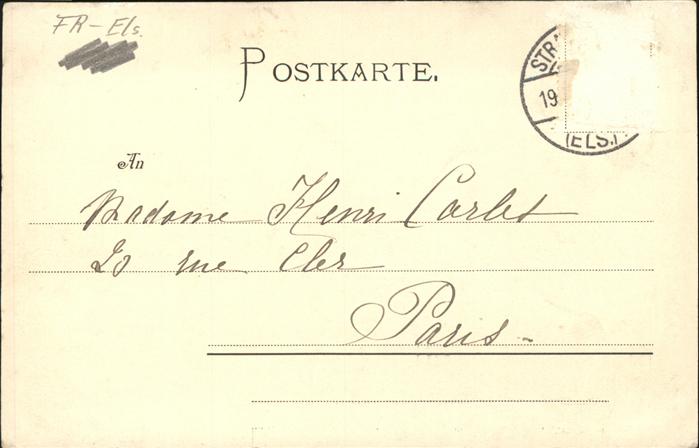 FR-Els.
POSTKARTE.
STRA
19
(ELS.)
An
Madame Henri Carlet
20 rue Cler
Paris-